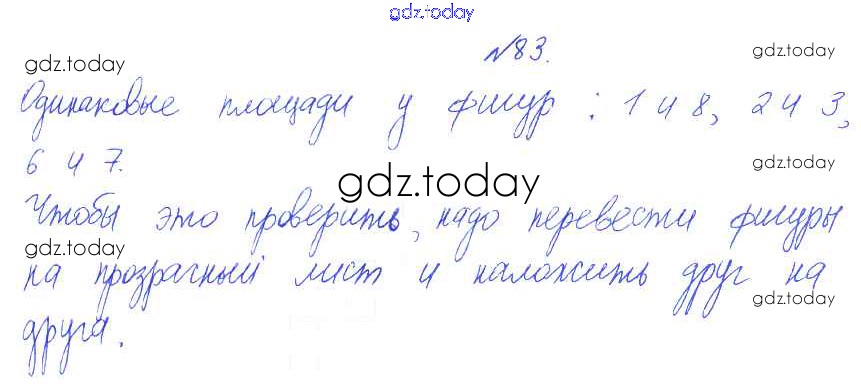 gdz.today
№83.
gdz.today
gdz.today
Одинаковые площади у фигур: 1 и 8, 2 и 3,
6 и 7.
gdz.today
gdz.today
Чтобы это проверить, надо перевести фигуры
gdz.today
на прозрачный лист и наложить друг на
gdz.today
друга.